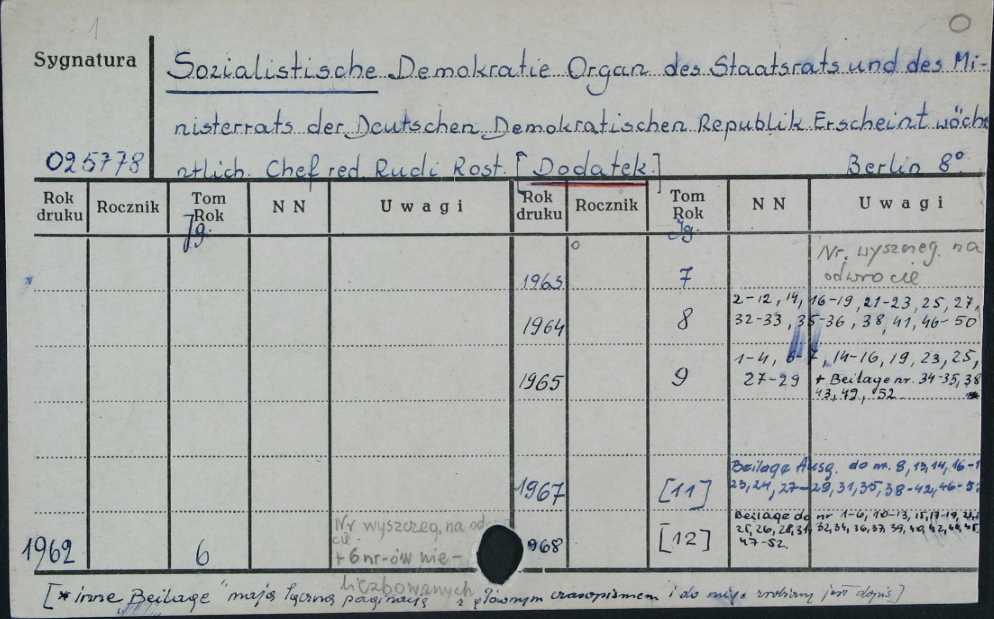 1
Sygnatura
Sozialistische Demokratie Organ des Staatsrats und des Mi-
nisterrats der Deutschen Demokratischen Republik Erscheint wöche
025778 ntlich. Chef red. Rudi Rost. [Dodatek.] Berlin 8°
Rok druku Rocznik Tom Rok Jg. NN Uwagi Rok druku Rocznik Tom Rok Jg. NN Uwagi
1963 7 Nr. wyszczeg. na
odwrocie
1964 8 2-12, 14, 16-19, 21-23, 25, 27,
32-33, 35-36, 38, 41, 46-50
1965 9 1-4, 6-7, 14-16, 19, 23, 25,
27-29 + Beilage nr. 34-35, 38
43, 49, 52
1967 [11] Beilage Ausg. do nr. 8, 13, 14, 16-1
23, 24, 27-29, 31, 35, 38-42, 46-5
1962 6 Nr wyszczeg. na od-
cie
+ 6 nr-ów nie-
liczbowanych
968 [12] Beilage do nr 1-6, 10-13, 15, 17-19,
25, 26, 28, 31, 32, 34, 36, 37, 39, 40, 42, 44, 45
47-52
[* inne "Beilage" mają łączną paginację z głównym czasopismem i do niego zrobiony jest dopis]